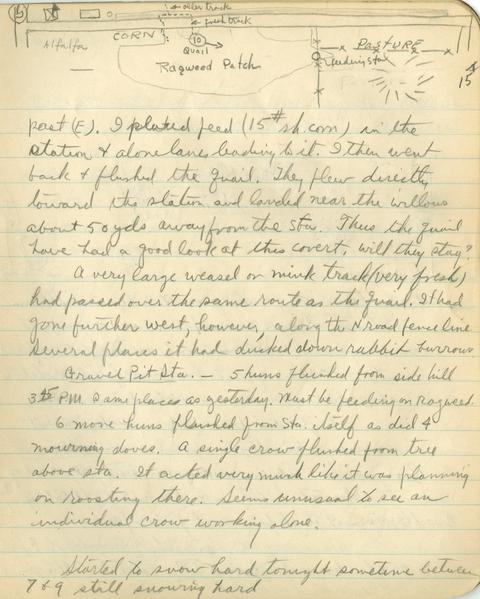 15
older track
fresh track
Alfalfa
CORN
10
Quail
PASTURE
Ragweed Patch
feeding sta
15
past (E). I placed feed (15# sh. corn) in the
station & along lanes leading to it. I then went
back & flushed the quail. They flew directly
toward the station and landed near the willows
about 50 yds away from the sta. Thus the quail
have had a good look at this covert, will they stay?
A very large weasel or mink track (very fresh)
had passed over the same route as the quail. It had
gone further west, however, along the N road fence line
Several places it had ducked down rabbit burrows
Gravel Pit Sta. — 5 huns flushed from side hill
345 P.M. Same places as yesterday. Must be feeding on ragweed.
6 more huns flushed from sta. itself as did 4
mourning doves. A single crow flushed from tree
above sta. It acted very much like it was planning
on roosting there. Seems unusual to see an
individual crow working alone.
Started to snow hard tonight sometime between
7 & 9 still snowing hard